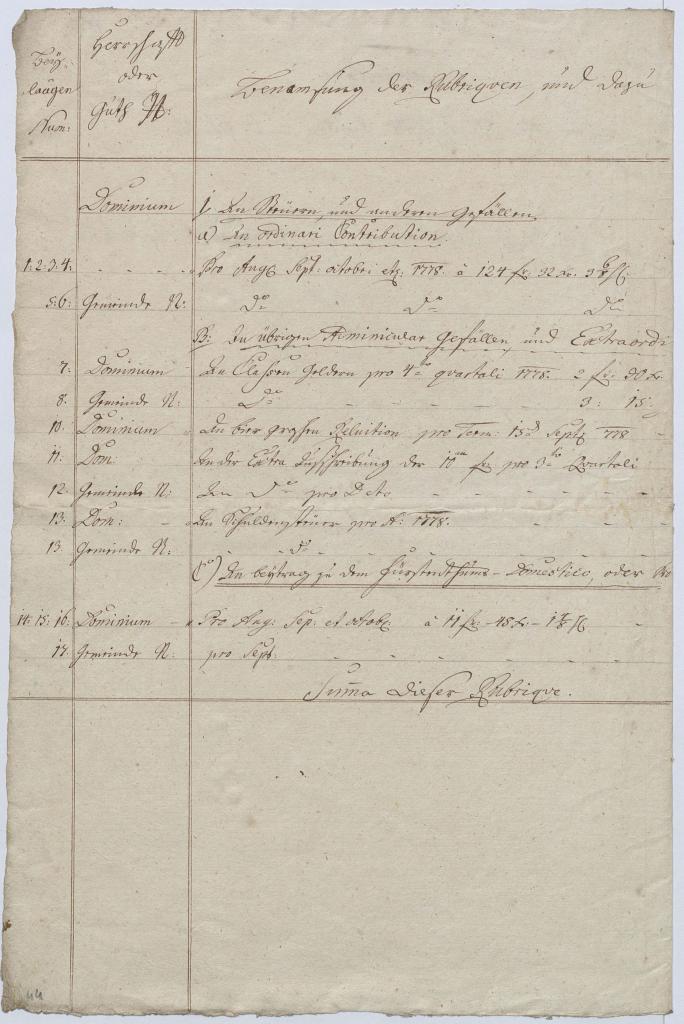 Beÿ-
laagen
Num:
Herrschafft
oder
Guth N:
Benamsung der Rubriqven, und dazu
Dominium 1. An Steüern, und anderen Gefällen.
a) An ordinari Contribution.
1: 2: 3: 4: - - - - Pro Aug: Sept: octobri etc: 1778. à 124 fr. 32 xr.
5: 6: Gemeinde N: Do Do Do
B: An übrigen Adminicular Gefällen, und Extraordi
7. Dominium An Classen Geldern pro 4to quartali 1778. 2 fr: 30 xr.
8. Gemeinde N: Do - - - - 3: 15:
10. Dominium An bier Reluition pro Term: 15 Sept: 778 -
11. Dom: An der Extra Ausschreibung der 10 fr: pro 3tio Quartali
12. Gemeinde N: An Do pro Dcto - - - - -
13. Dom: - An Schuldensteüer pro A: 1778. - - - -
13. Gemeinde N: - - do - - - -
C) An beÿtrag zu dem Fürstenthums-Domestico, oder
14: 15: 16. Dominium - Pro Aug: Sep: et octobr: à 11 fr: 48 xr:
17. Gemeinde N: pro Sept: - - - - -
Summa dieser Rubriqve.
44